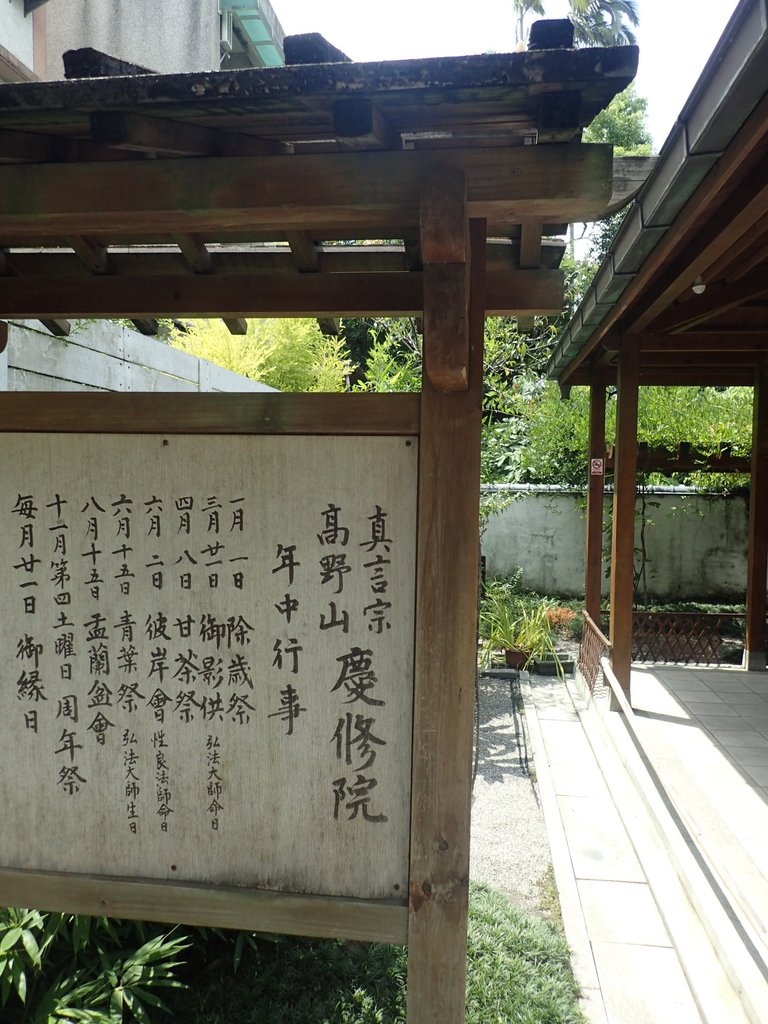 真言宗
高野山 慶修院
年中行事
一月 一日 除歳祭
三月廿一日 御影供 弘法大師命日
四月 八日 甘茶祭
六月 二日 彼岸會 性良法師命日
六月十五日 青葉祭 弘法大師生日
八月十五日 盂蘭盆會
十一月第四土曜日 周年祭
每月廿一日 御縁日